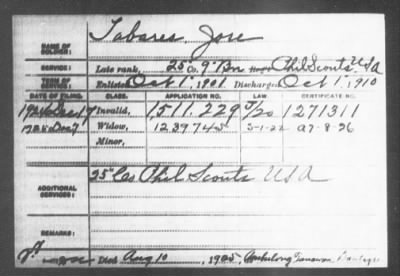 NAME OF SOLDIER: Tabares Jose
SERVICE: Late rank, 25" Co. 9" Bn Phil Scouts, USA
TERM OF SERVICE: Enlisted Oct 1", 1901 Discharged Oct 1", 1910
DATE OF FILING. CLASS. APPLICATION NO. LAW CERTIFICATE NO.
Invalid, 1,511.229 1271311
Widow, 1239745 5-1-22 a7-8-26
Minor,
ADDITIONAL SERVICES: 25" Co Phil Scouts USA
REMARKS:
Died Aug 10, 1925,